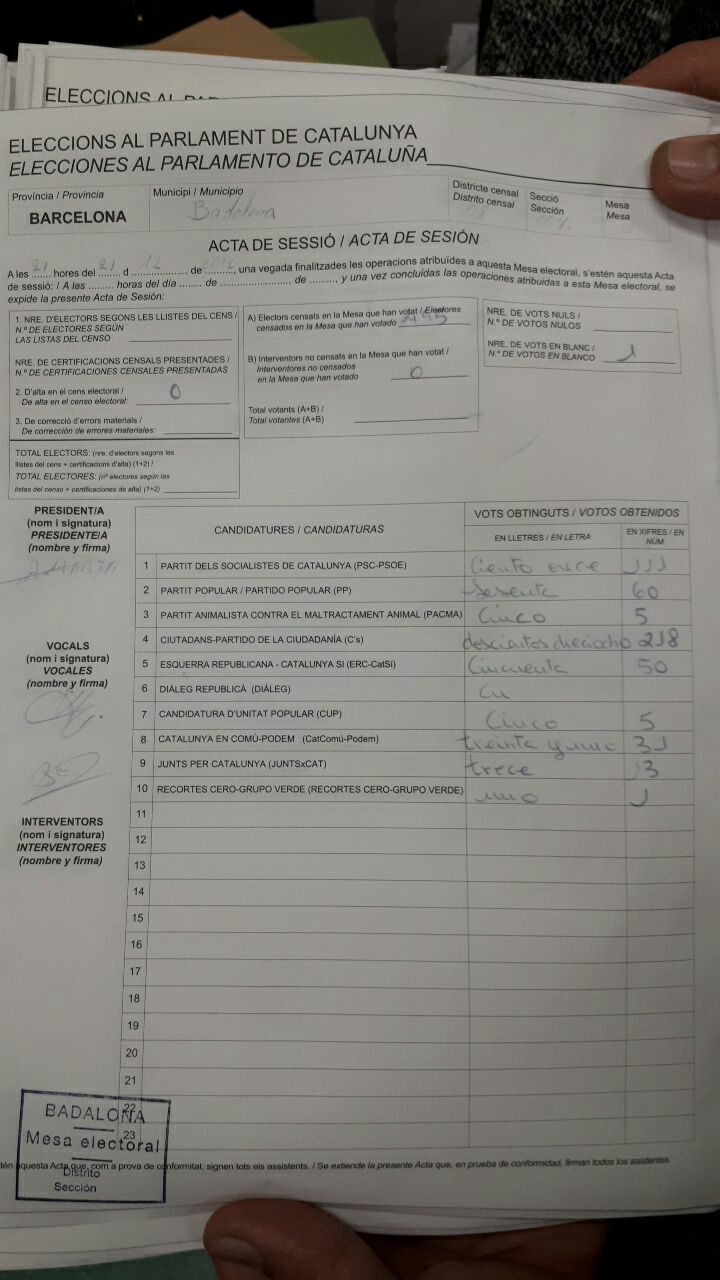 ELECCIONS AL PAR
ELECCIONS AL PARLAMENT DE CATALUNYA
ELECCIONES AL PARLAMENTO DE CATALUÑA
Província / Provincia
BARCELONA
Municipi / Municipio
Badalona
Districte censal
Distrito censal
Secció
Sección
Mesa
Mesa
ACTA DE SESSIÓ / ACTA DE SESIÓN
A les 21 hores del 21 d 12 de ........, una vegada finalitzades les operacions atribuïdes a aquesta Mesa electoral, s'estén aquesta Acta
de sessió: / A las ......... horas del día ........ de .......................... de ......... y una vez concluidas las operaciones atribuidas a esta Mesa electoral, se
expide la presente Acta de Sesión:
1. NRE. D'ELECTORS SEGONS LES LLISTES DEL CENS /
N.º DE ELECTORES SEGÚN
LAS LISTAS DEL CENSO
NRE. DE CERTIFICACIONS CENSALS PRESENTADES /
N.º DE CERTIFICACIONES CENSALES PRESENTADAS
2. D'alta en el cens electoral /
De alta en el censo electoral: 0
3. De correcció d'errors materials /
De corrección de errores materiales:
TOTAL ELECTORS: (nre. d'electors segons les
llistes del cens + certificacions d'alta) (1+2) /
TOTAL ELECTORES: (nº electores según las
listas del censo + certificaciones de alta) (1+2)
A) Electors censats en la Mesa que han votat / Electores
censados en la Mesa que han votado
B) Interventors no censats en la Mesa que han votat /
Interventores no censados
en la Mesa que han votado 0
Total votants (A+B) /
Total votantes (A+B)
NRE. DE VOTS NULS /
N.º DE VOTOS NULOS
NRE. DE VOTS EN BLANC /
N.º DE VOTOS EN BLANCO 1
PRESIDENT/A
(nom i signatura)
PRESIDENTE/A
(nombre y firma)
VOCALS
(nom i signatura)
VOCALES
(nombre y firma)
INTERVENTORS
(nom i signatura)
INTERVENTORES
(nombre y firma)
CANDIDATURES / CANDIDATURAS
VOTS OBTINGUTS / VOTOS OBTENIDOS
EN LLETRES / EN LETRA
EN XIFRES / EN
NÚM.
1 PARTIT DELS SOCIALISTES DE CATALUNYA (PSC-PSOE) Ciento once 111
2 PARTIT POPULAR / PARTIDO POPULAR (PP) Sesenta 60
3 PARTIT ANIMALISTA CONTRA EL MALTRACTAMENT ANIMAL (PACMA) Cinco 5
4 CIUTADANS-PARTIDO DE LA CIUDADANÍA (C's) doscientos dieciocho 218
5 ESQUERRA REPUBLICANA - CATALUNYA SÍ (ERC-CatSí) Cincuenta 50
6 DIÀLEG REPUBLICÀ (DIÀLEG)
7 CANDIDATURA D'UNITAT POPULAR (CUP) Cinco 5
8 CATALUNYA EN COMÚ-PODEM (CatComú-Podem) treinta y uno 31
9 JUNTS PER CATALUNYA (JUNTSxCAT) trece 13
10 RECORTES CERO-GRUPO VERDE (RECORTES CERO-GRUPO VERDE) uno 1
11
12
13
14
15
16
17
18
19
20
21
22
23
BADALONA
Mesa electoral
Distrito
Sección
tén aquesta Acta que, com a prova de conformitat, signen tots els assistents. / Se extiende la presente Acta que, en prueba de conformidad, firman todos los asistentes.